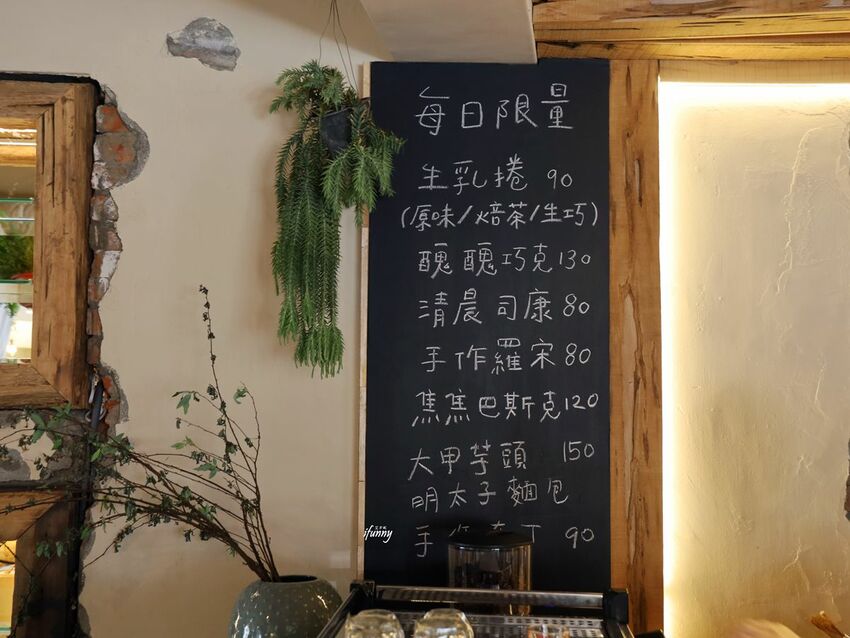 每日限量
生乳捲 90
(原味/焙茶/生巧)
醜醜巧克130
清晨司康80
手作羅宋80
焦焦巴斯克120
大甲芋頭 150
明太子麵包
手作 90
ifunny